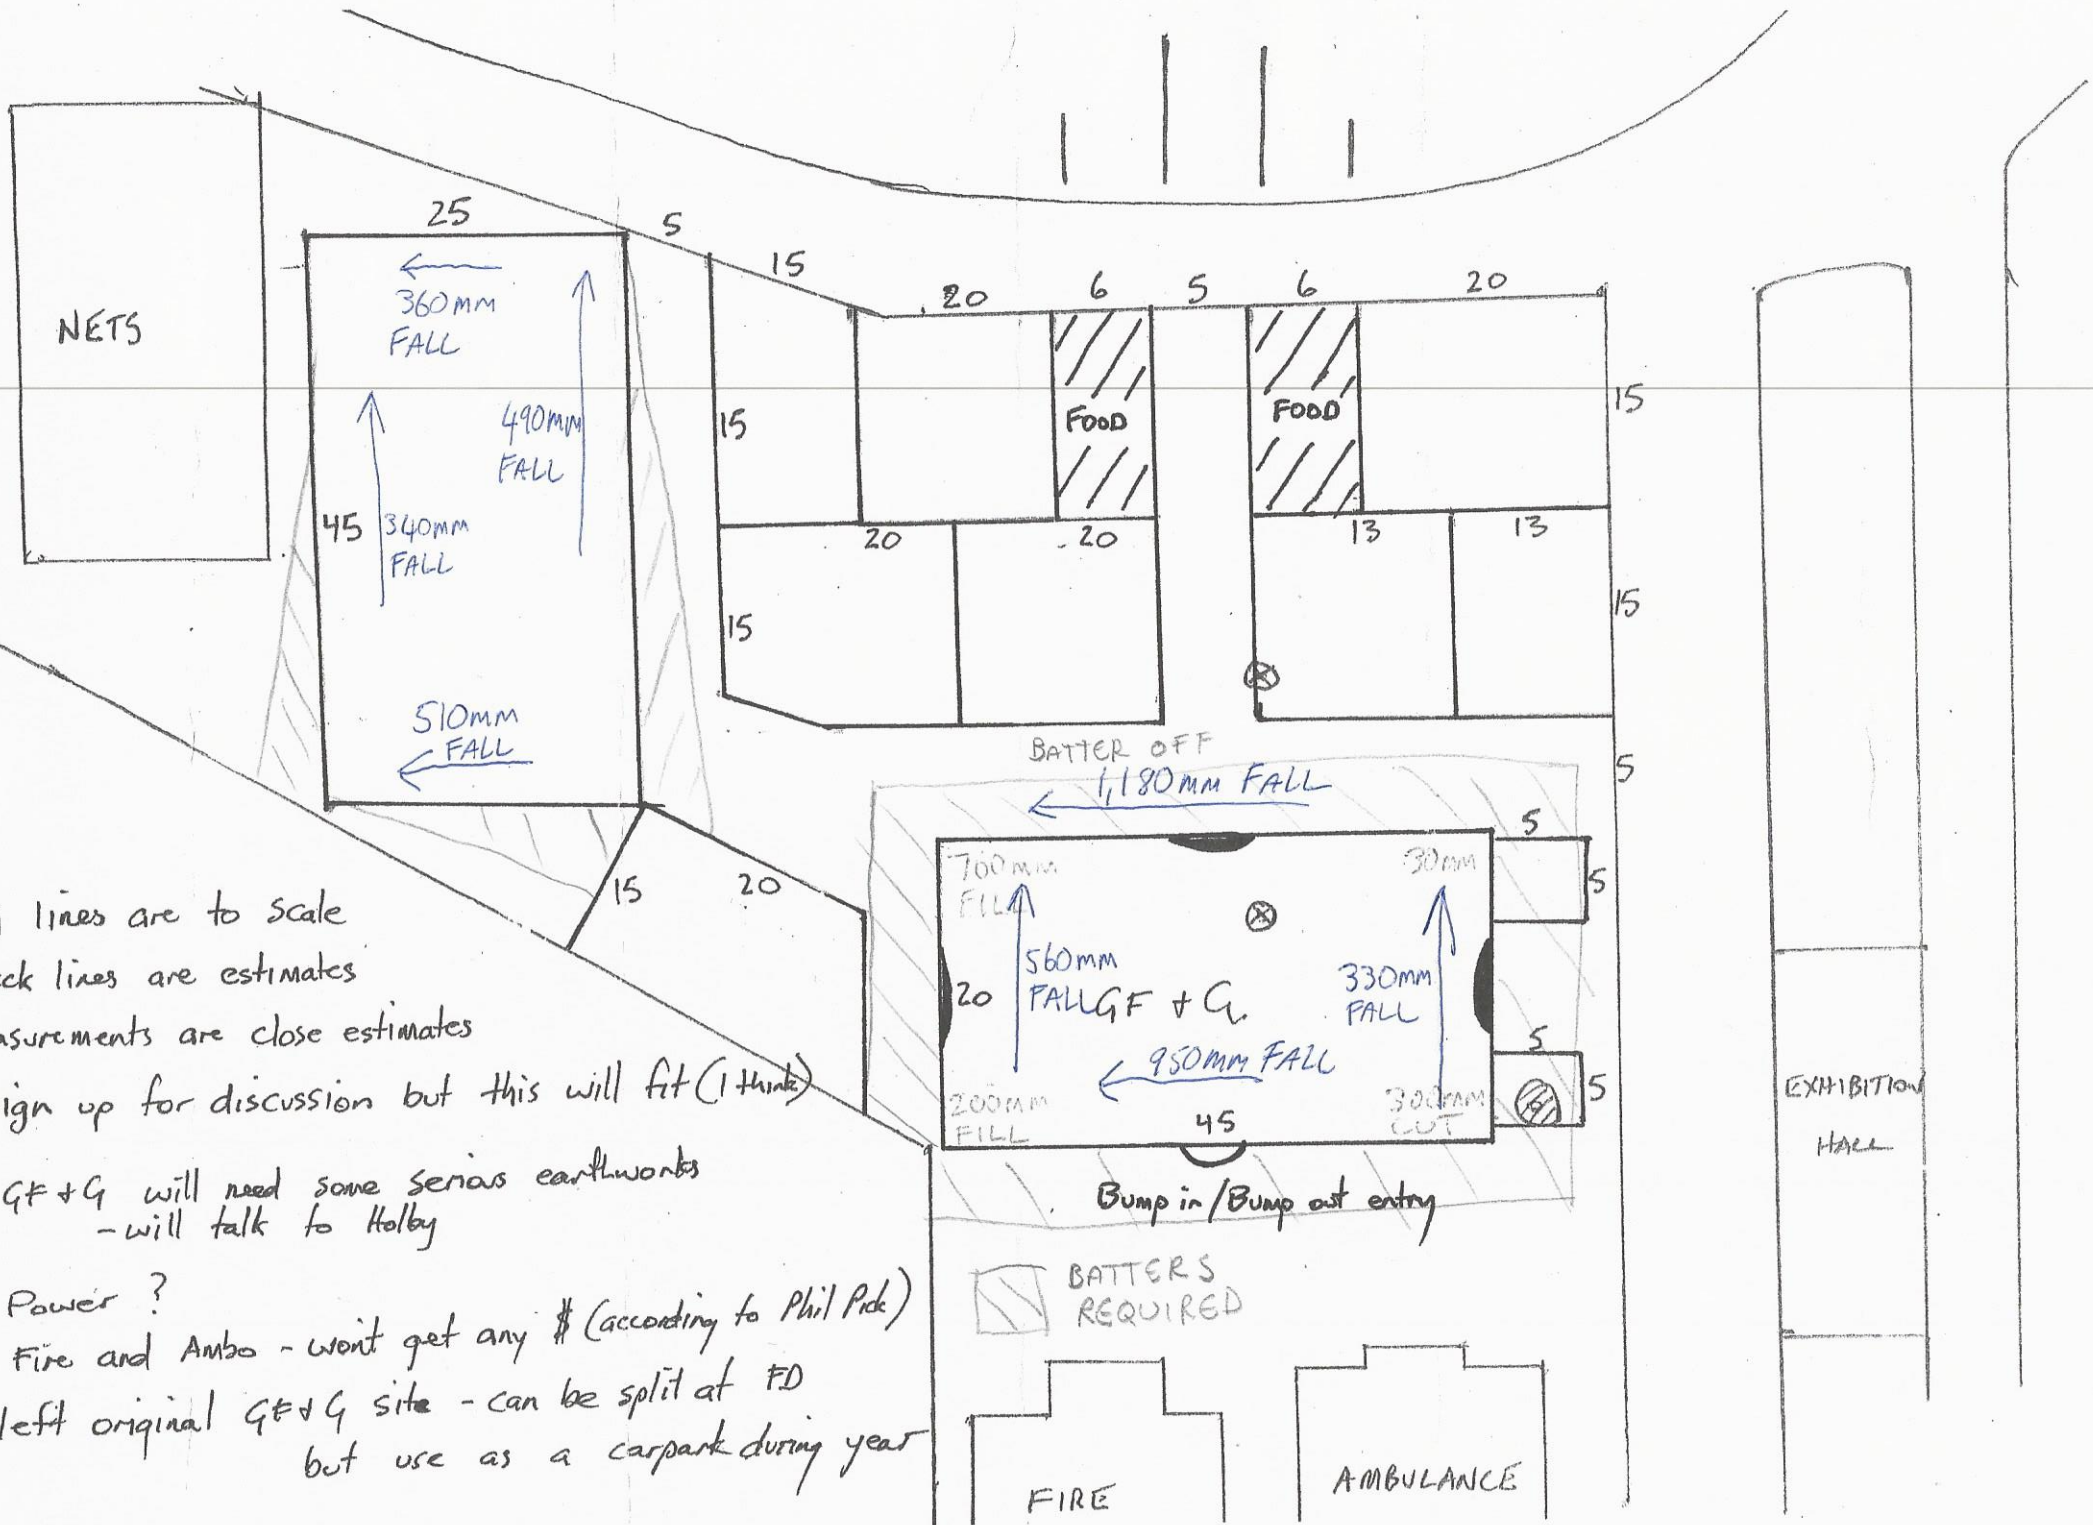 25
5
15
20
6
5
6
20
NETS
360MM
FALL
490MM
FALL
45
340MM
FALL
510MM
FALL
15
FOOD
FOOD
15
20
20
13
13
15
15
BATTER OFF
1,180MM FALL
5
5
5
700MM
FILL
30MM
15
20
20
560MM
FALL
GF + G.
330MM
FALL
950MM FALL
5
5
200MM
FILL
45
300MM
CUT
EXHIBITION
HALL
Bump in/Bump out entry
BATTERS
REQUIRED
lines are to scale
ck lines are estimates
asurements are close estimates
ign up for discussion but this will fit (I think)
GF + G will need some serious earthworks
- will talk to Holby
Power ?
Fire and Ambo - wont get any $ (according to Phil Pick)
left original GF+G site - can be split at FD
but use as a carpark during year
FIRE
AMBULANCE